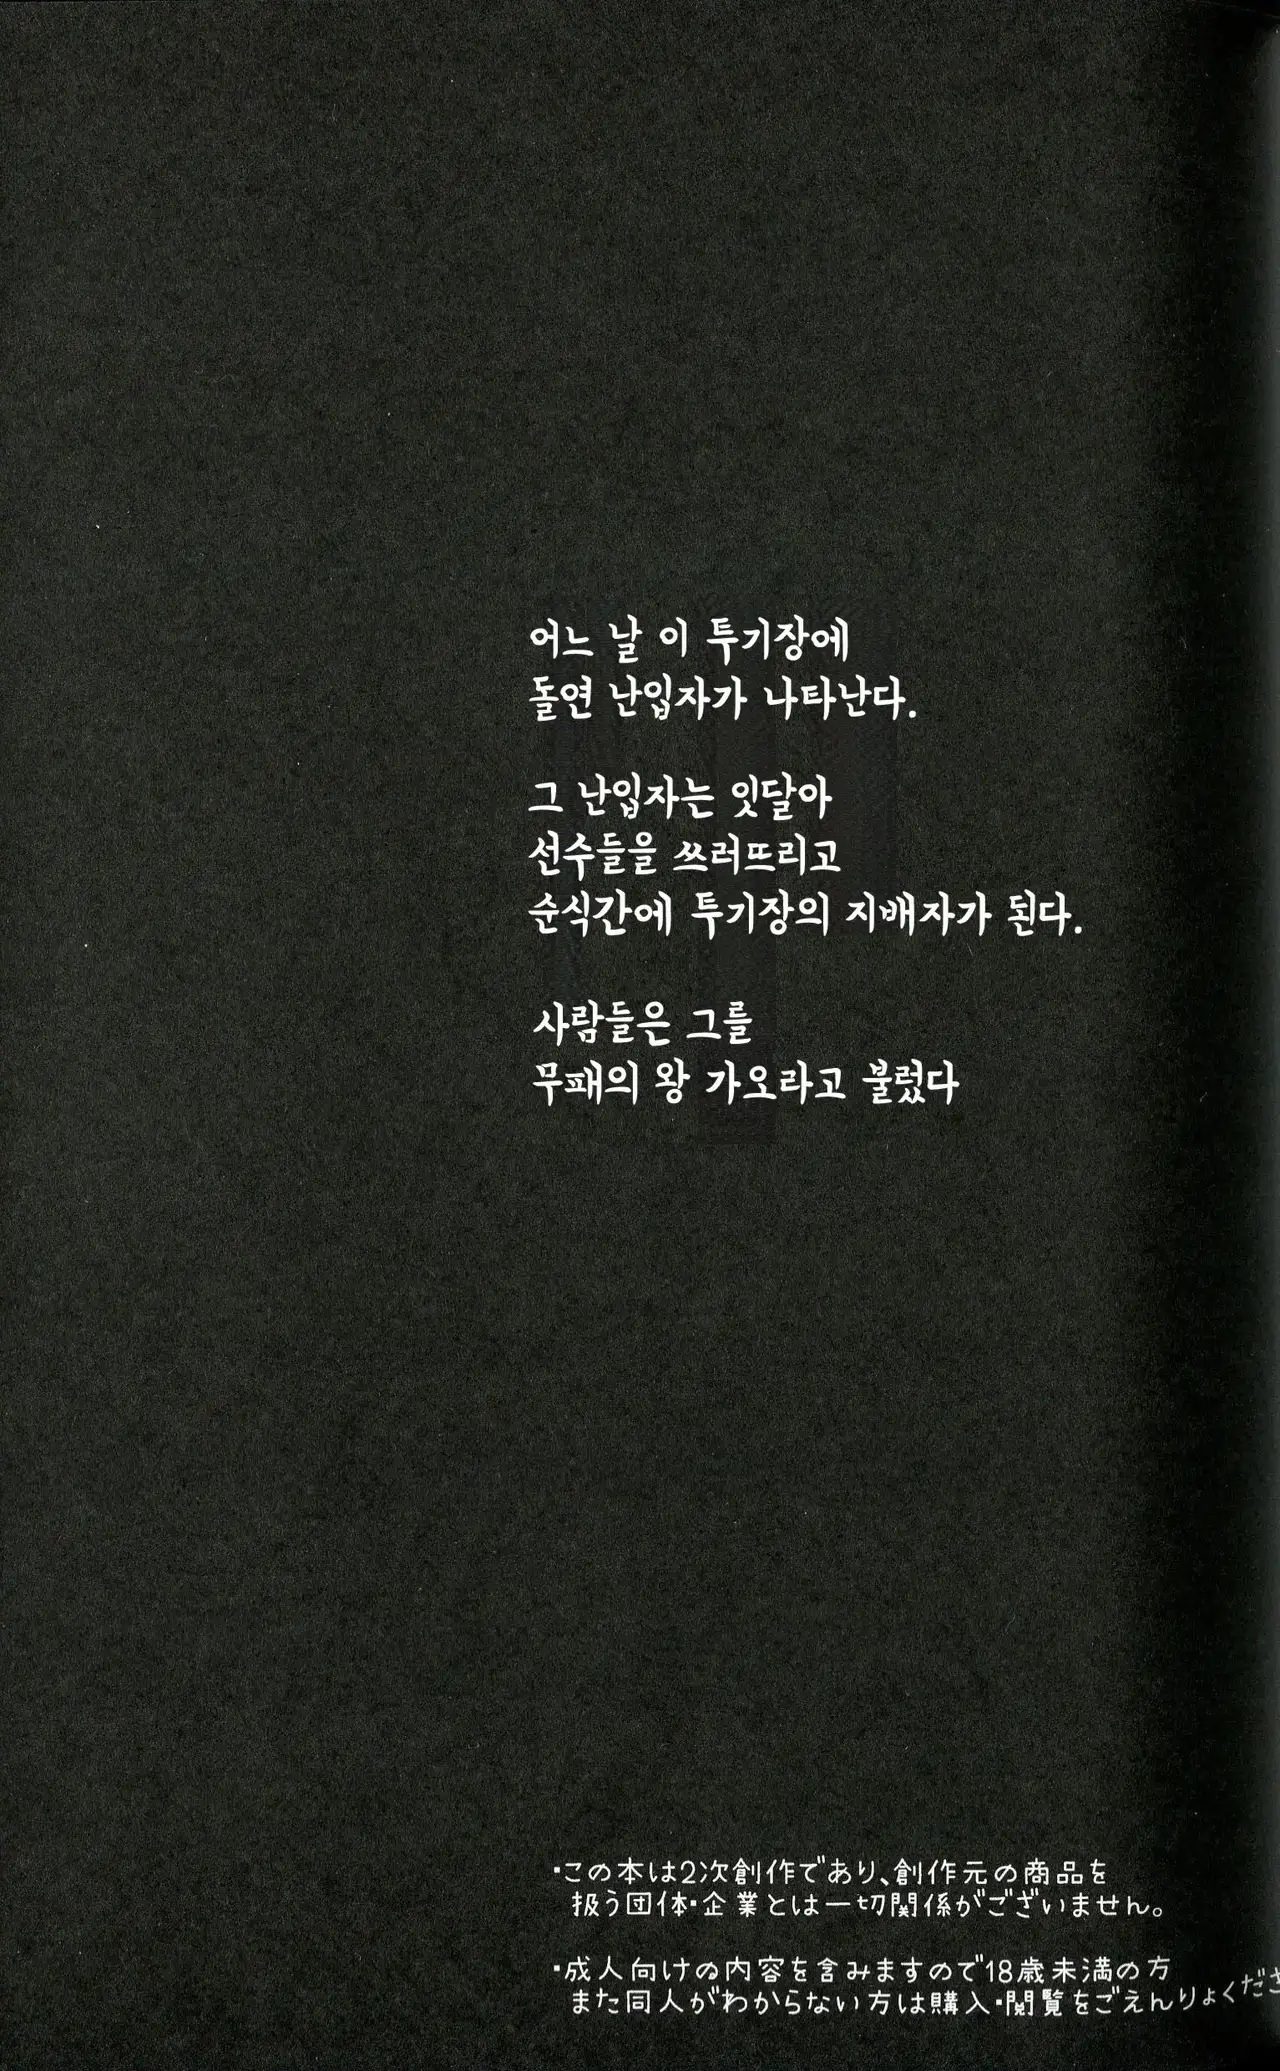 어느 날 이 투기장에
돌연 난입자가 나타난다.
그 난입자는 잇달아
선수들을 쓰러뜨리고
순식간에 투기장의 지배자가 된다.
사람들은 그를
무패의 왕 가오라고 불렀다
・この本は2次創作であり、創作元の商品を
扱う団体・企業とは一切関係がございません。
・成人向けの内容を含みますので18歳未満の方
また同人がわからない方は購入・閲覧をごえんりょくださ